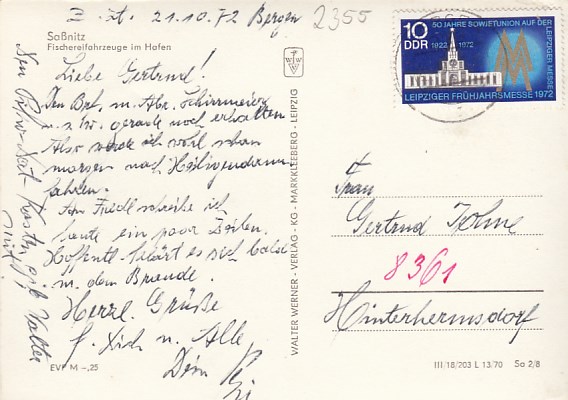 z. Zt. 21.10.72 Bergen
2355
Saßnitz
Fischereifahrzeuge im Hafen
Liebe Gertrud!
Den Brf. m. Abr. Schirrmeister
gerade noch erhalten
Also werde ich wohl schon
morgen nach Heiligendamm
fahren.
schreibe ich
heute ein paar Zeilen.
klärt es sich bald
m. dem Brande.
Herzl. Grüße
f. Dich u. Alle
Dein
EVP M –,25
WALTER WERNER - VERLAG - KG - MARKKLEEBERG - LEIPZIG
10
DDR
50 JAHRE SOWJETUNION AUF DER
LEIPZIGER MESSE
1922 1972
LEIPZIGER FRÜHJAHRSMESSE 1972
Frau
Gertrud
8361
Hinterhermsdorf
III/18/203 L 13/70 Sa 2/8